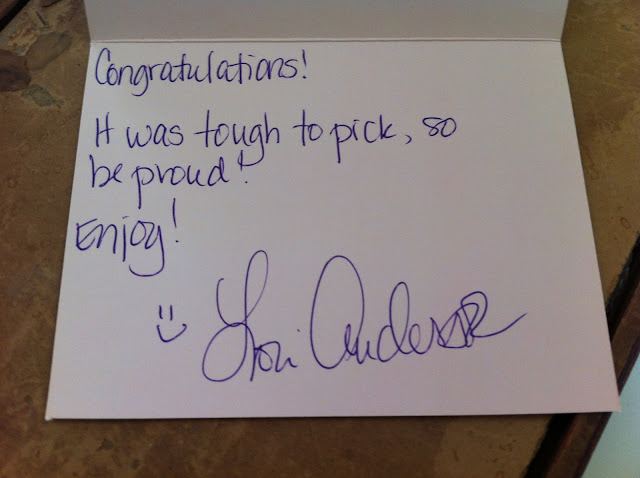 Congratulations!
It was tough to pick, so
be proud!
Enjoy!
Lori Anderson